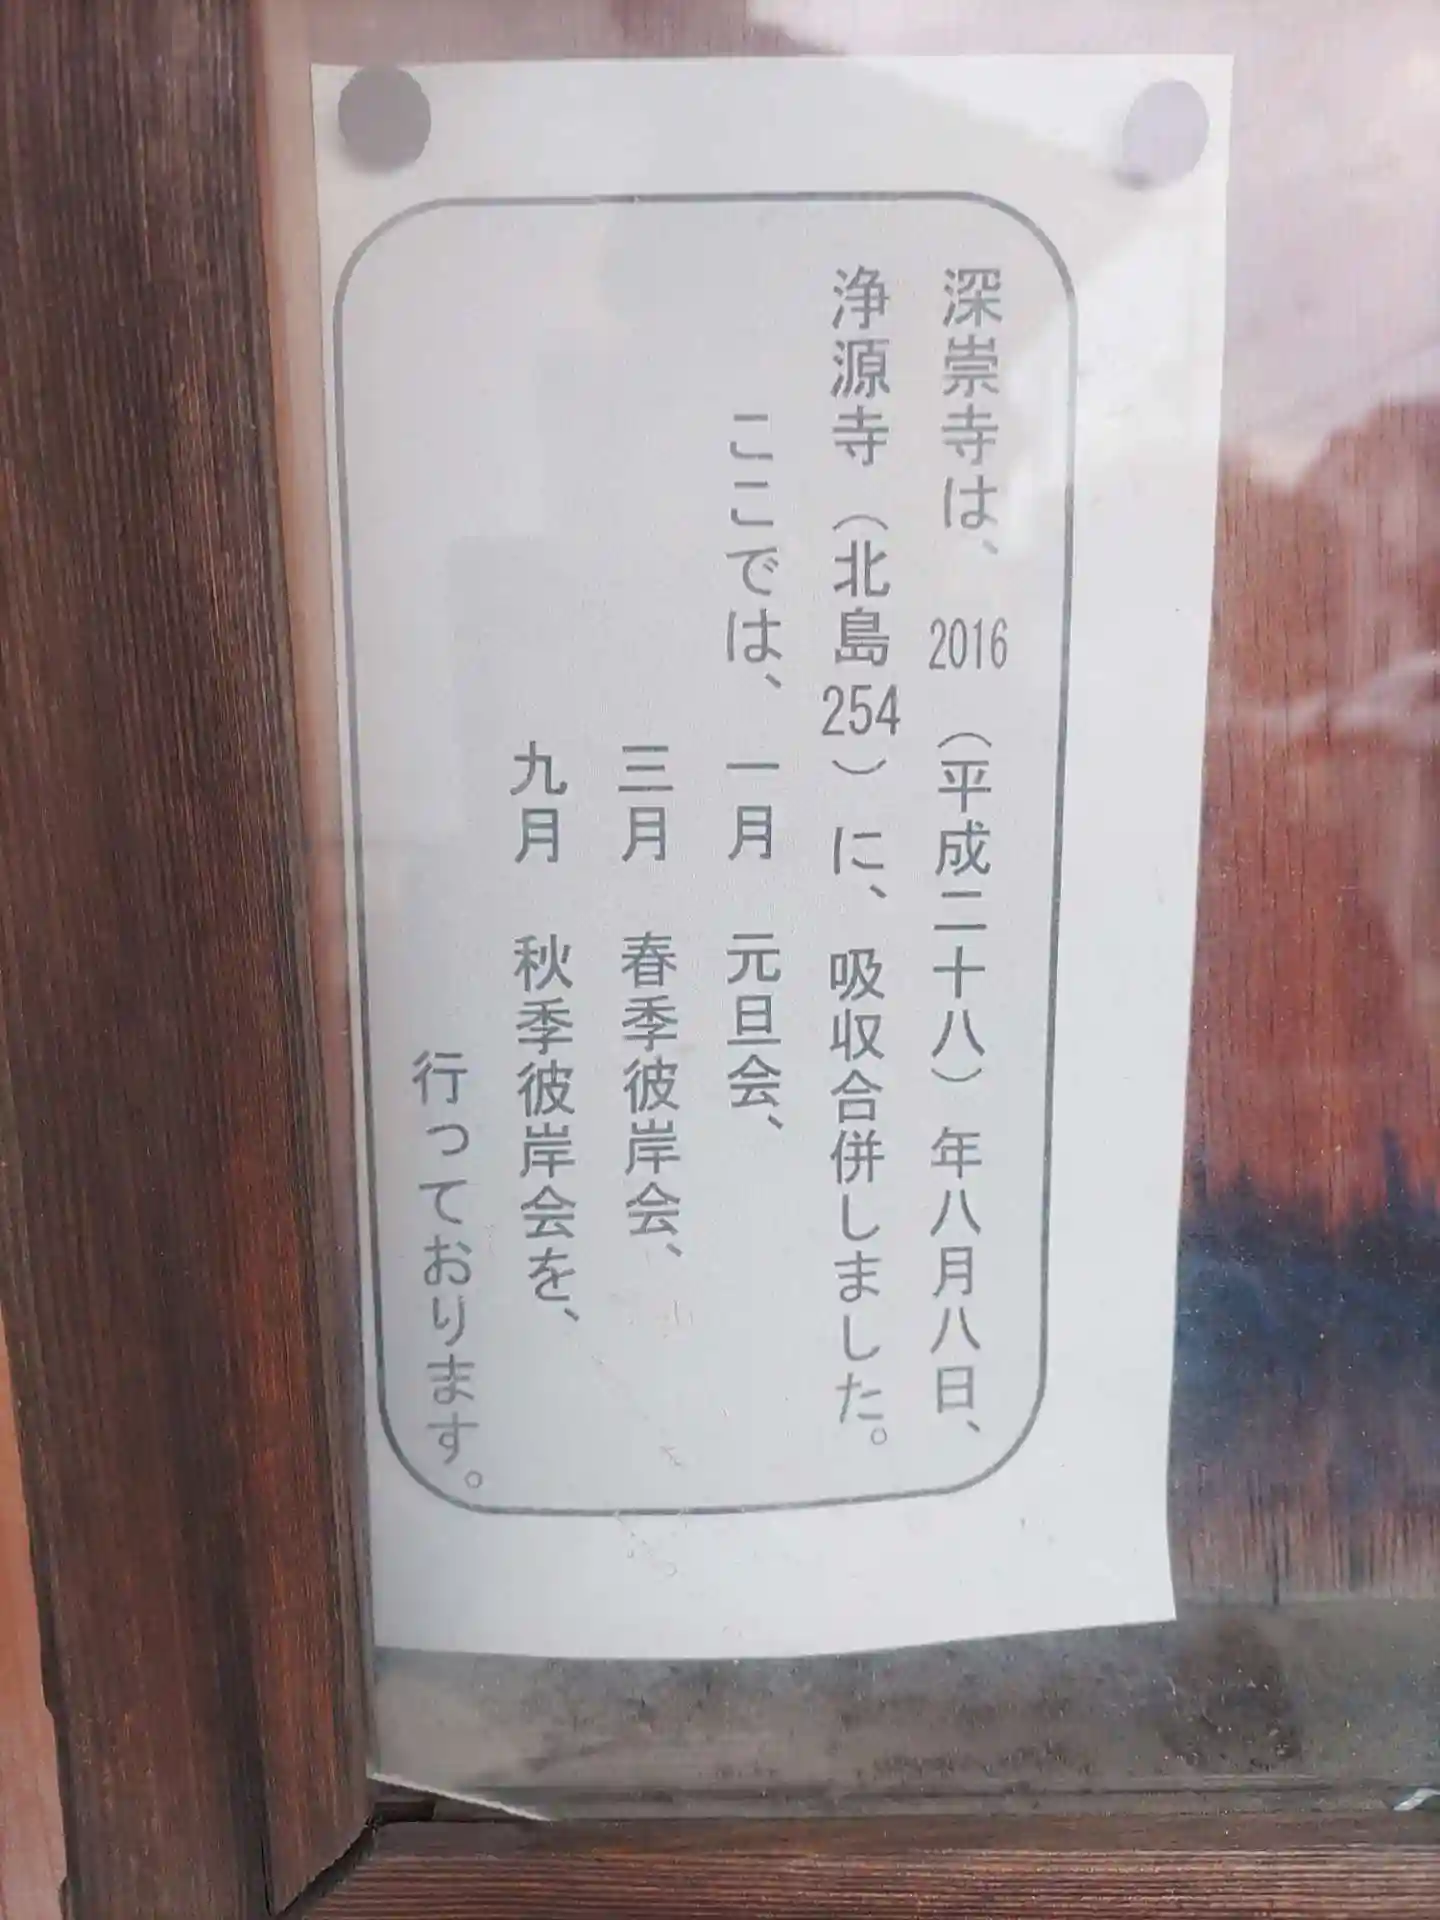 深崇寺は、2016（平成二十八）年八月八日、
浄源寺（北島254）に、吸収合併しました。
ここでは、一月　元旦会、
三月　春季彼岸会、
九月　秋季彼岸会を、
行っております。